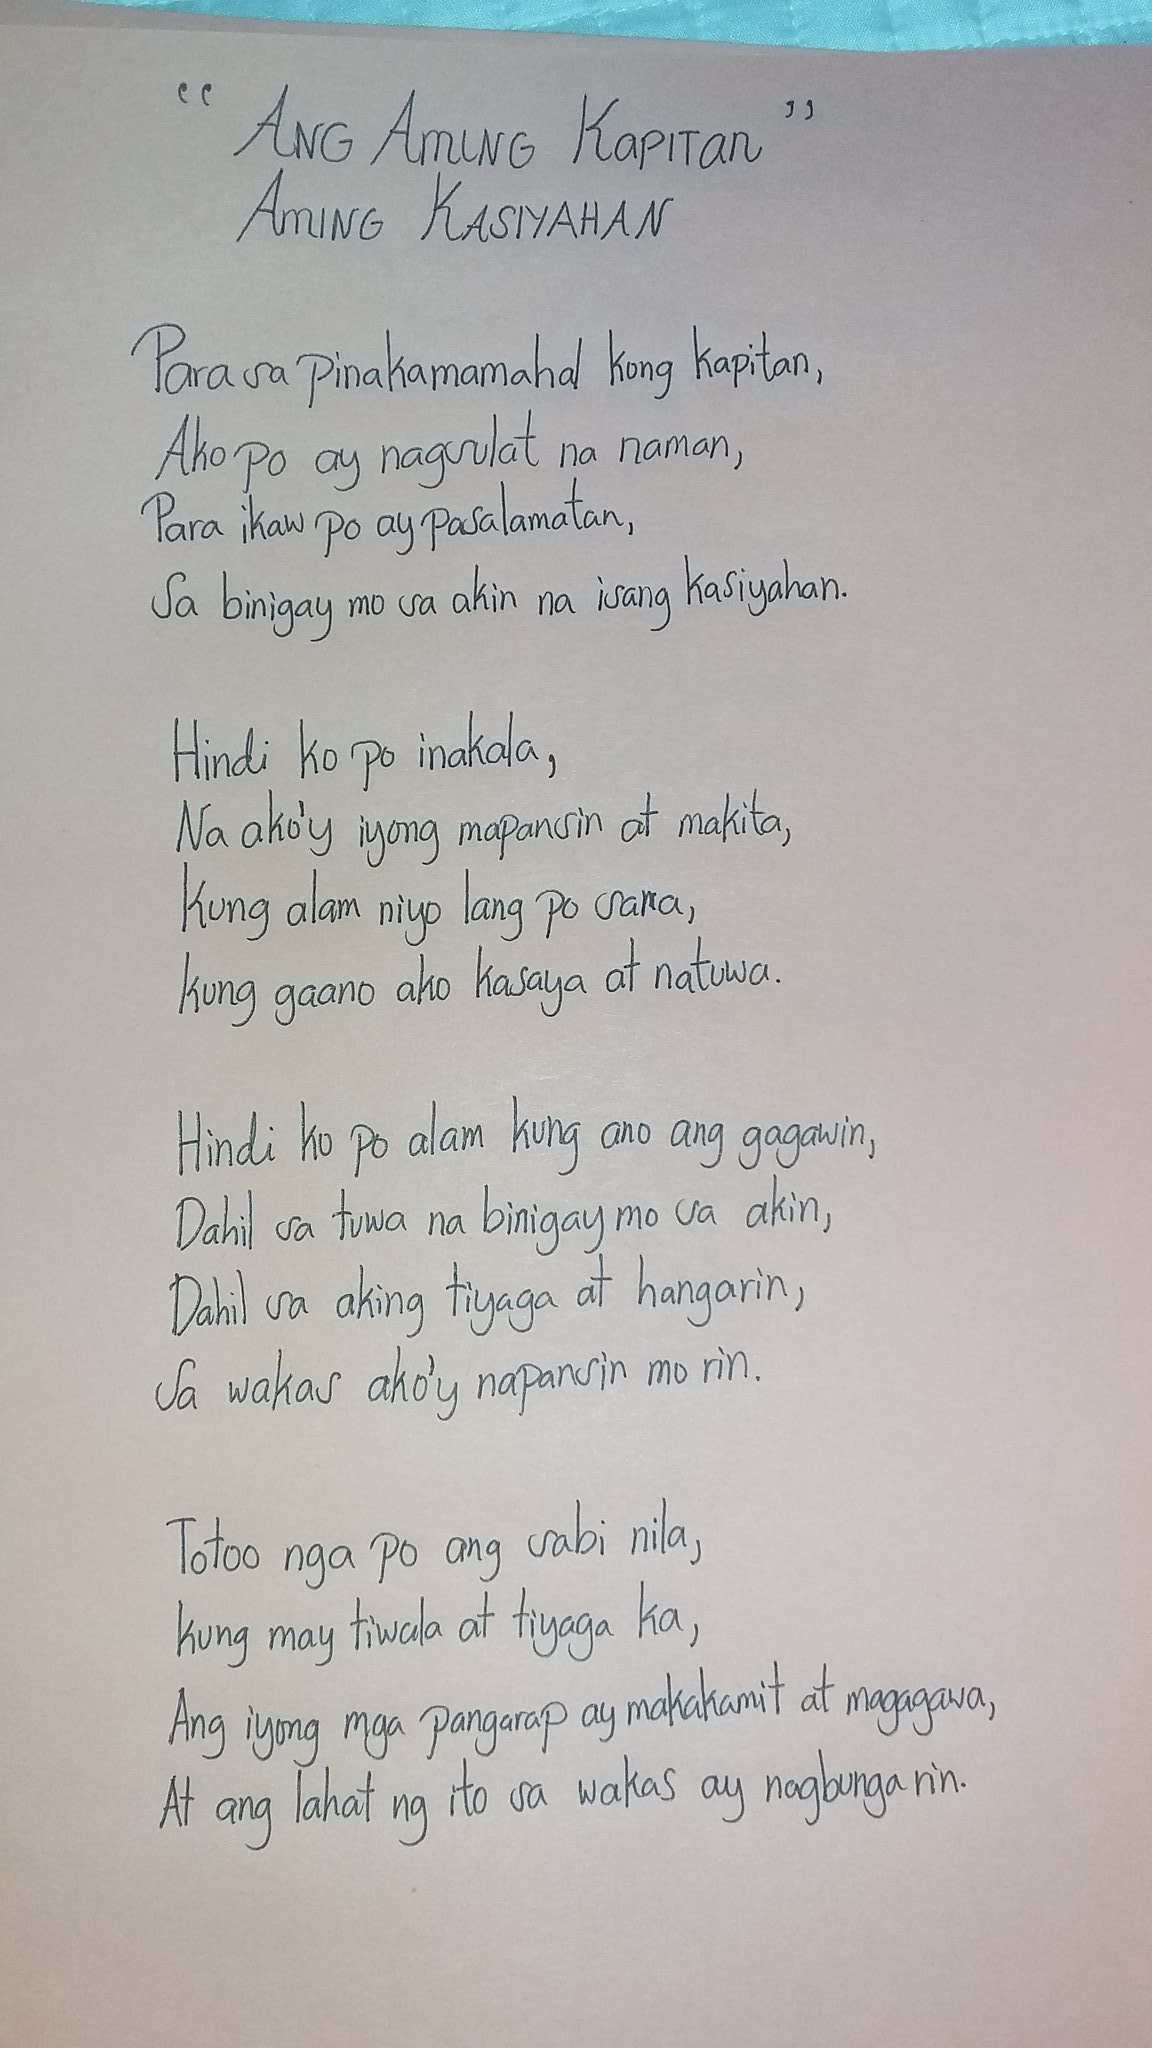 “ ANG AMING KAPITAN ”
AMING KASIYAHAN
Para sa pinakamamahal kong kapitan,
Ako po ay nagsulat na naman,
Para ikaw po ay pasalamatan,
Sa binigay mo sa akin na isang kasiyahan.
Hindi ko po inakala,
Na ako'y iyong mapansin at makita,
Kung alam niyo lang po sana,
kung gaano ako kasaya at natuwa.
Hindi ko po alam kung ano ang gagawin,
Dahil sa tuwa na binigay mo sa akin,
Dahil sa aking tiyaga at hangarin,
Sa wakas ako'y napansin mo rin.
Totoo nga po ang sabi nila,
kung may tiwala at tiyaga ka,
Ang iyong mga pangarap ay makakamit at magagawa,
At ang lahat ng ito sa wakas ay nagbunga rin.